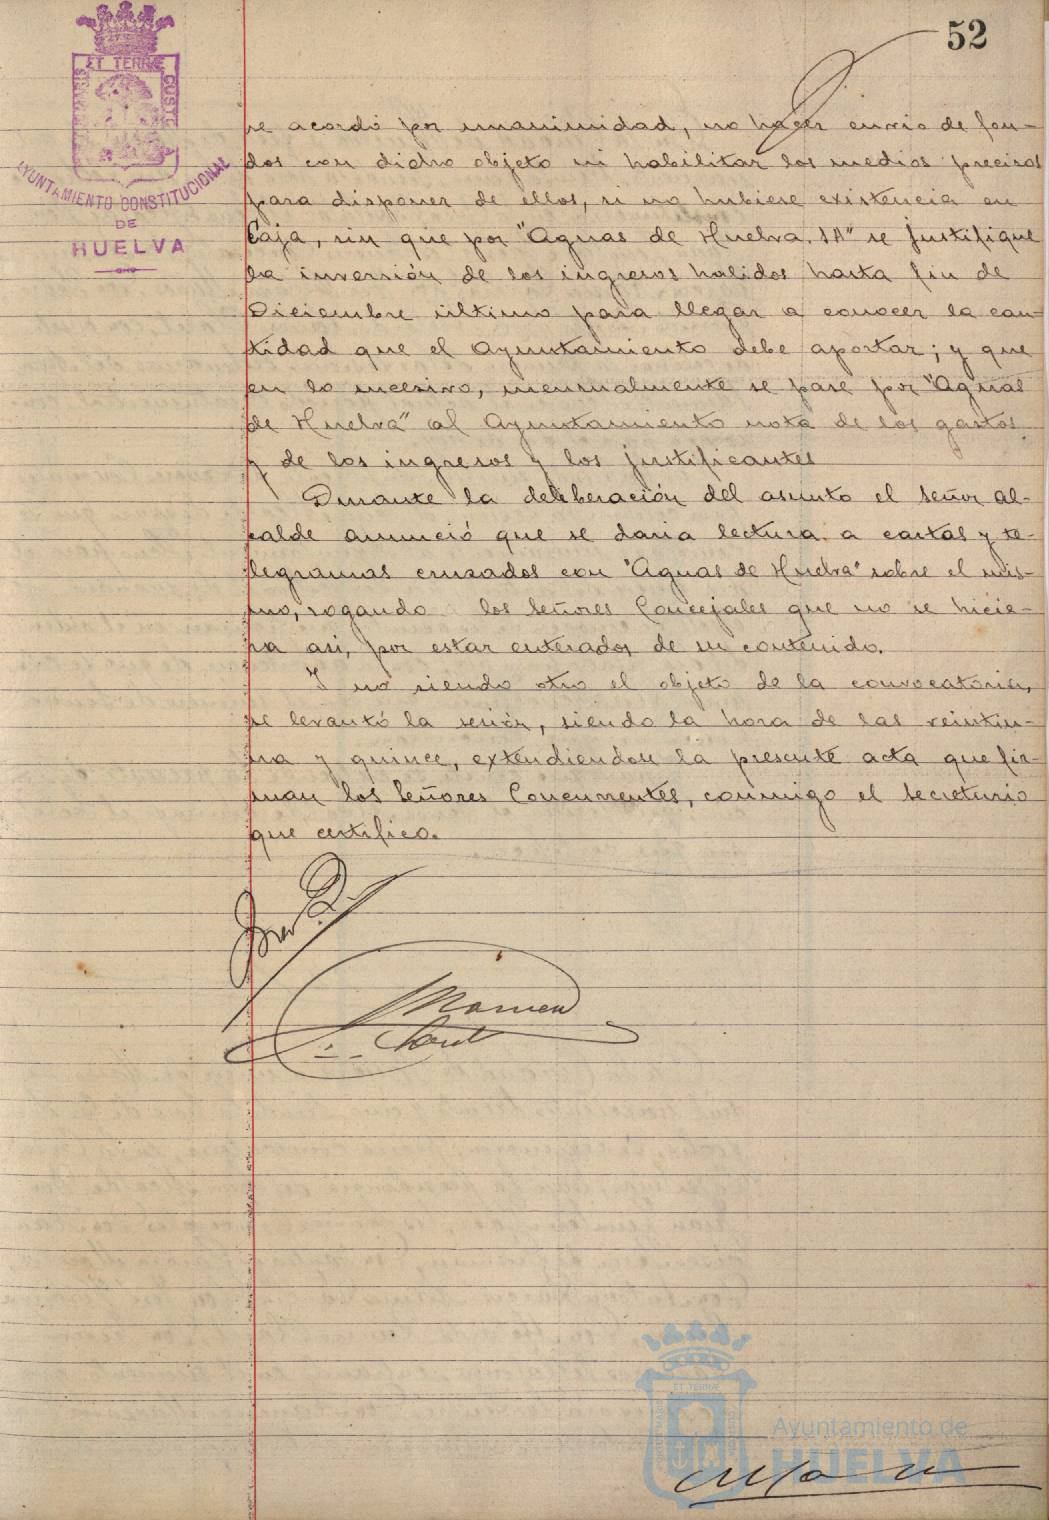 52
ET TERRÆ CUSTO
AYUNTAMIENTO CONSTITUCIONAL
DE
HUELVA
se acordó por unanimidad, no hacer envio de fon-
dos con dicho objeto ni habilitar los medios precisos
para disponer de ellos, si no hubiese existencia en
Caja, sin que por "Aguas de Huelva. SA" se justifique
la inversión de los ingresos habidos hasta fin de
Diciembre último para llegar a conocer la can-
tidad que el Ayuntamiento debe aportar; y que
en lo sucesivo, mensualmente se pase por "Aguas
de Huelva" al Ayuntamiento nota de los gastos
y de los ingresos y los justificantes
Durante la deliberación del asunto el señor al-
calde anunció que se daria lectura a cartas y te-
legramas cruzados con "Aguas de Huelva" sobre el mis-
mo, rogando los Señores Concejales que no se hicie-
ra asi, por estar enterados de su contenido.
Y no siendo otro el objeto de la convocatoria,
se levantó la sesión, siendo la hora de las veintiu-
na y quince, extendiendose la presente acta que fir-
man los Señores Concurrentes, conmigo el Secretario
que certifico.
ET TERRÆ
Ayuntamiento de
HUELVA